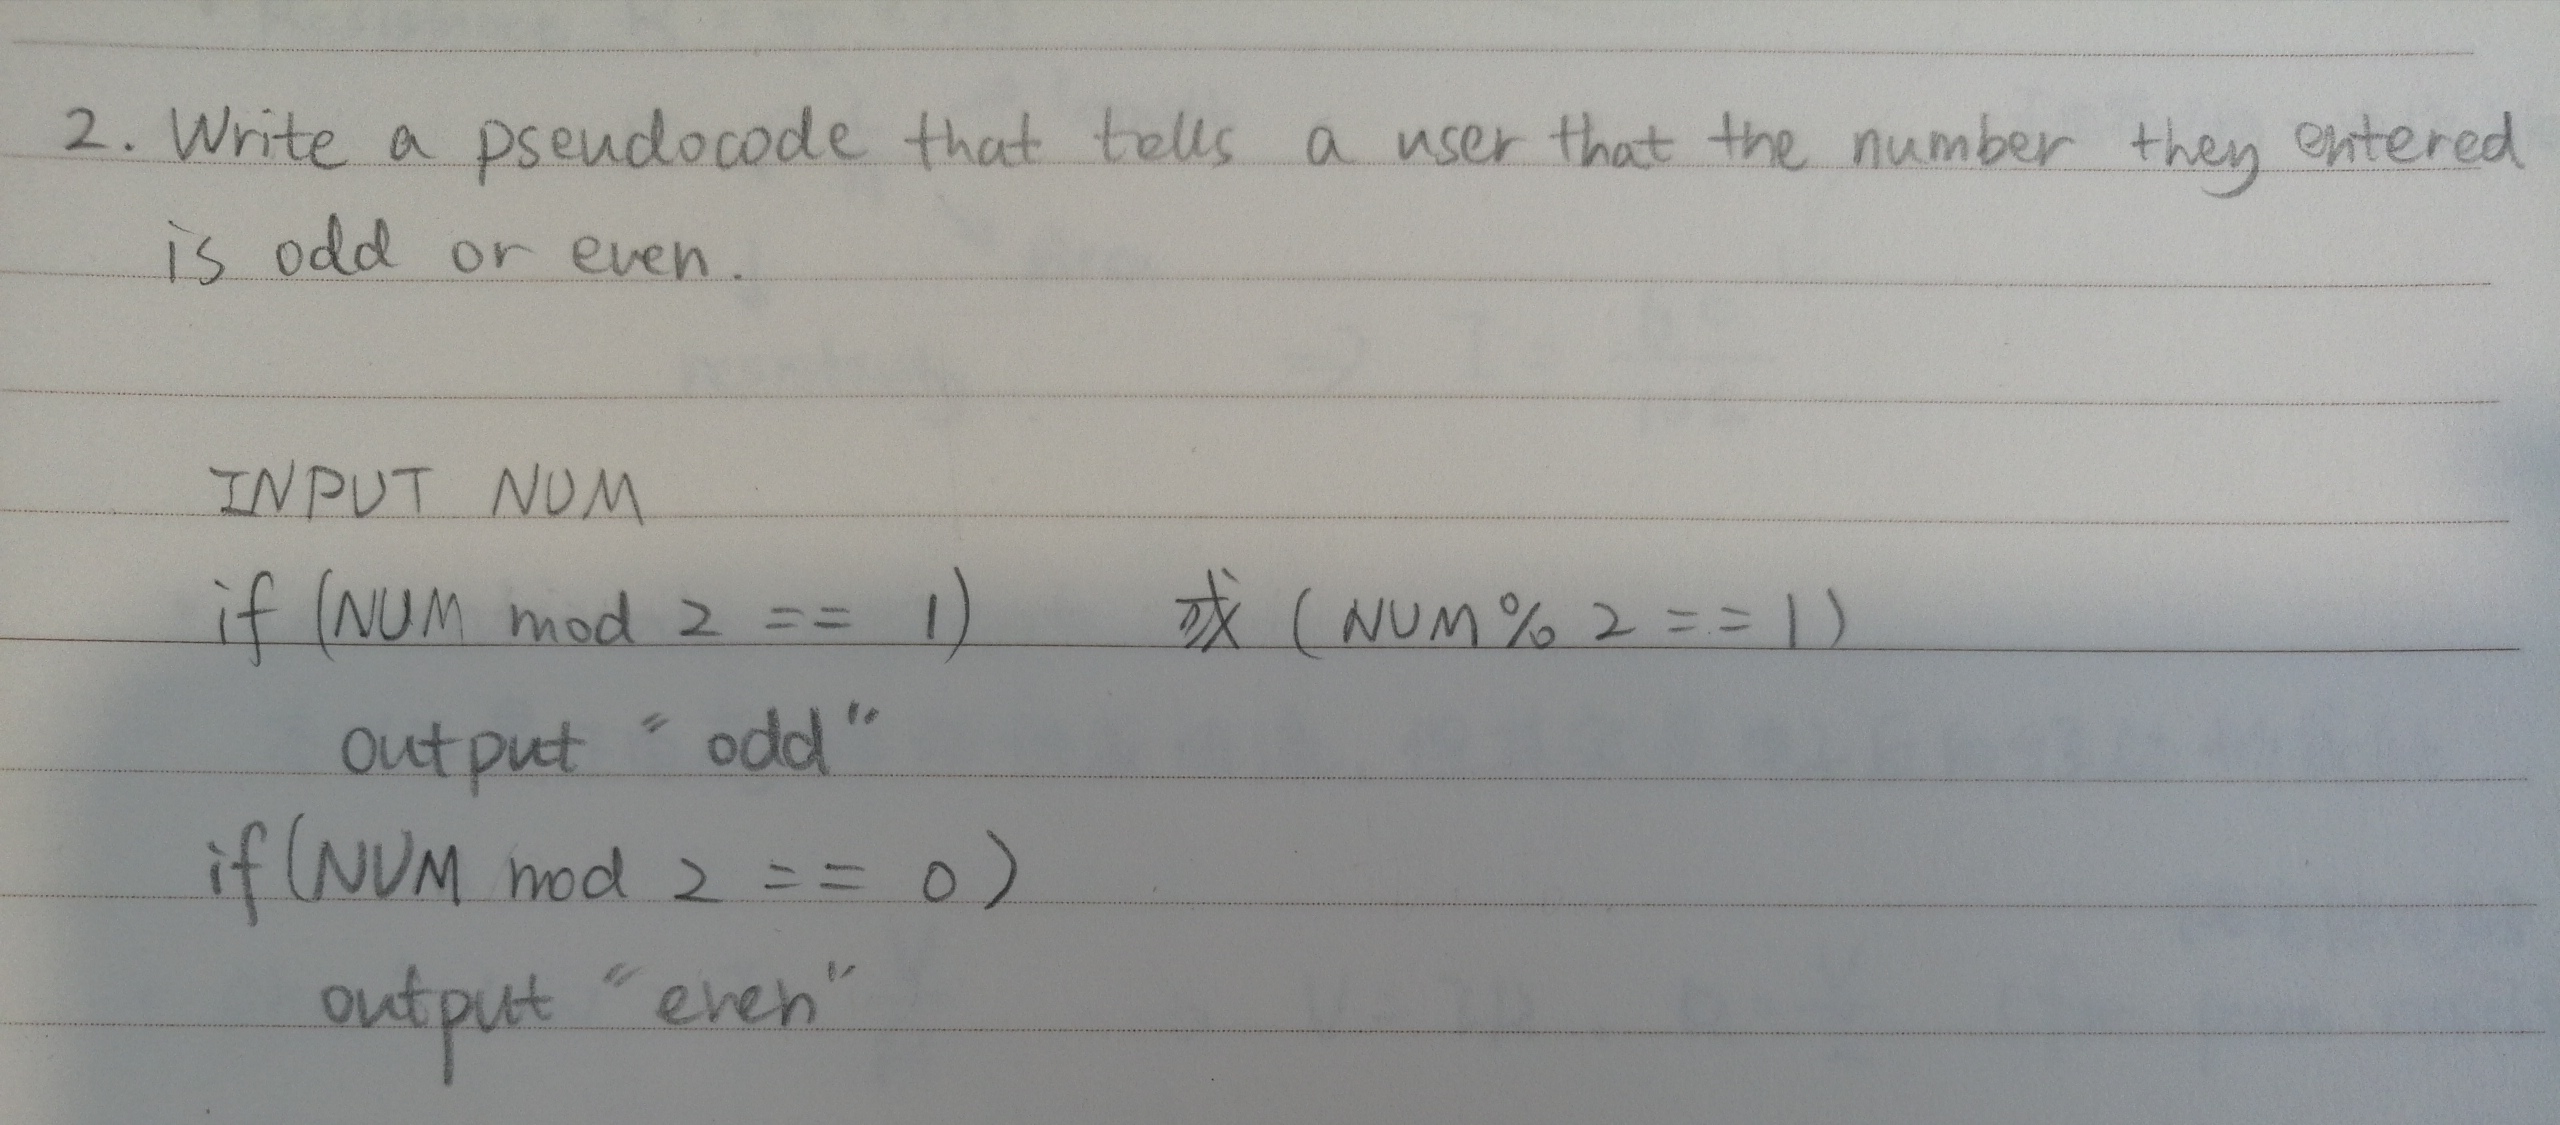 2. Write a pseudocode that tells a user that the number they entered
is odd or even.
INPUT NUM
if (NUM mod 2 == 1) 或 (NUM % 2 == 1)
output "odd"
if (NUM mod 2 == 0)
output "even"